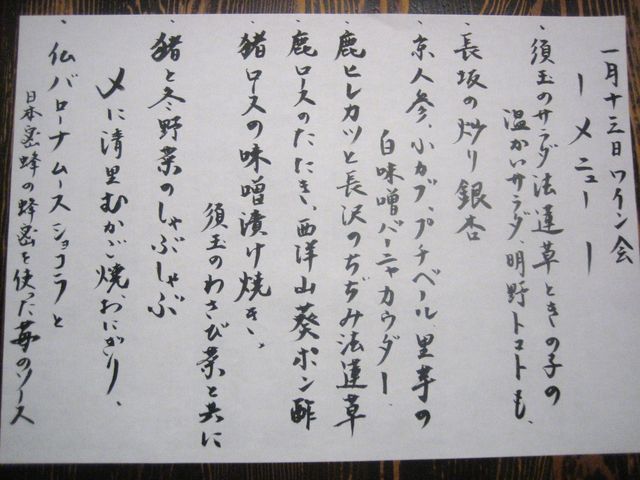 一月十三日ワイン会
ーメニューー
・須玉のサラダ法蓮草ときの子の
温かいサラダ、明野トマトも、
・長坂の炒り銀杏
・京人参、小カブ、プチベール、里芋の
白味噌バーニャカウダー、
・鹿ヒレカツと長沢のちぢみ法蓮草
・鹿ロースのたたき、西洋山葵ポン酢
・猪ロースの味噌漬け焼き、
須玉のわさび菜と共に
・猪と冬野菜のしゃぶしゃぶ
〆に清里むかご焼、おにぎり、
・仏バローナムースショコラと
日本蜜蜂の蜂蜜を使った苺のソース